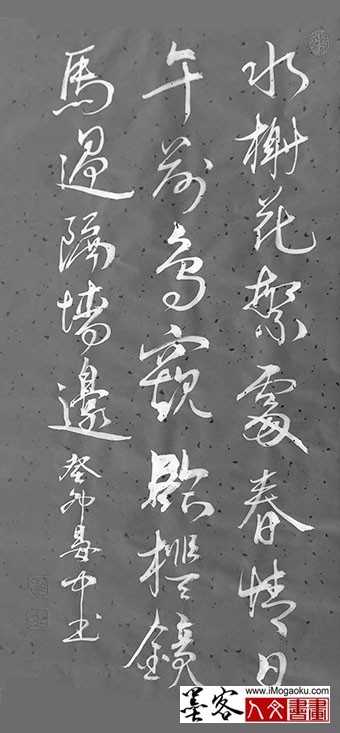 水榭花繁處春情日
午前鳥窺臨檻鏡
馬過隔墻邊
癸卯 中书
墨客
www.iMogaoku.com
人文書畫